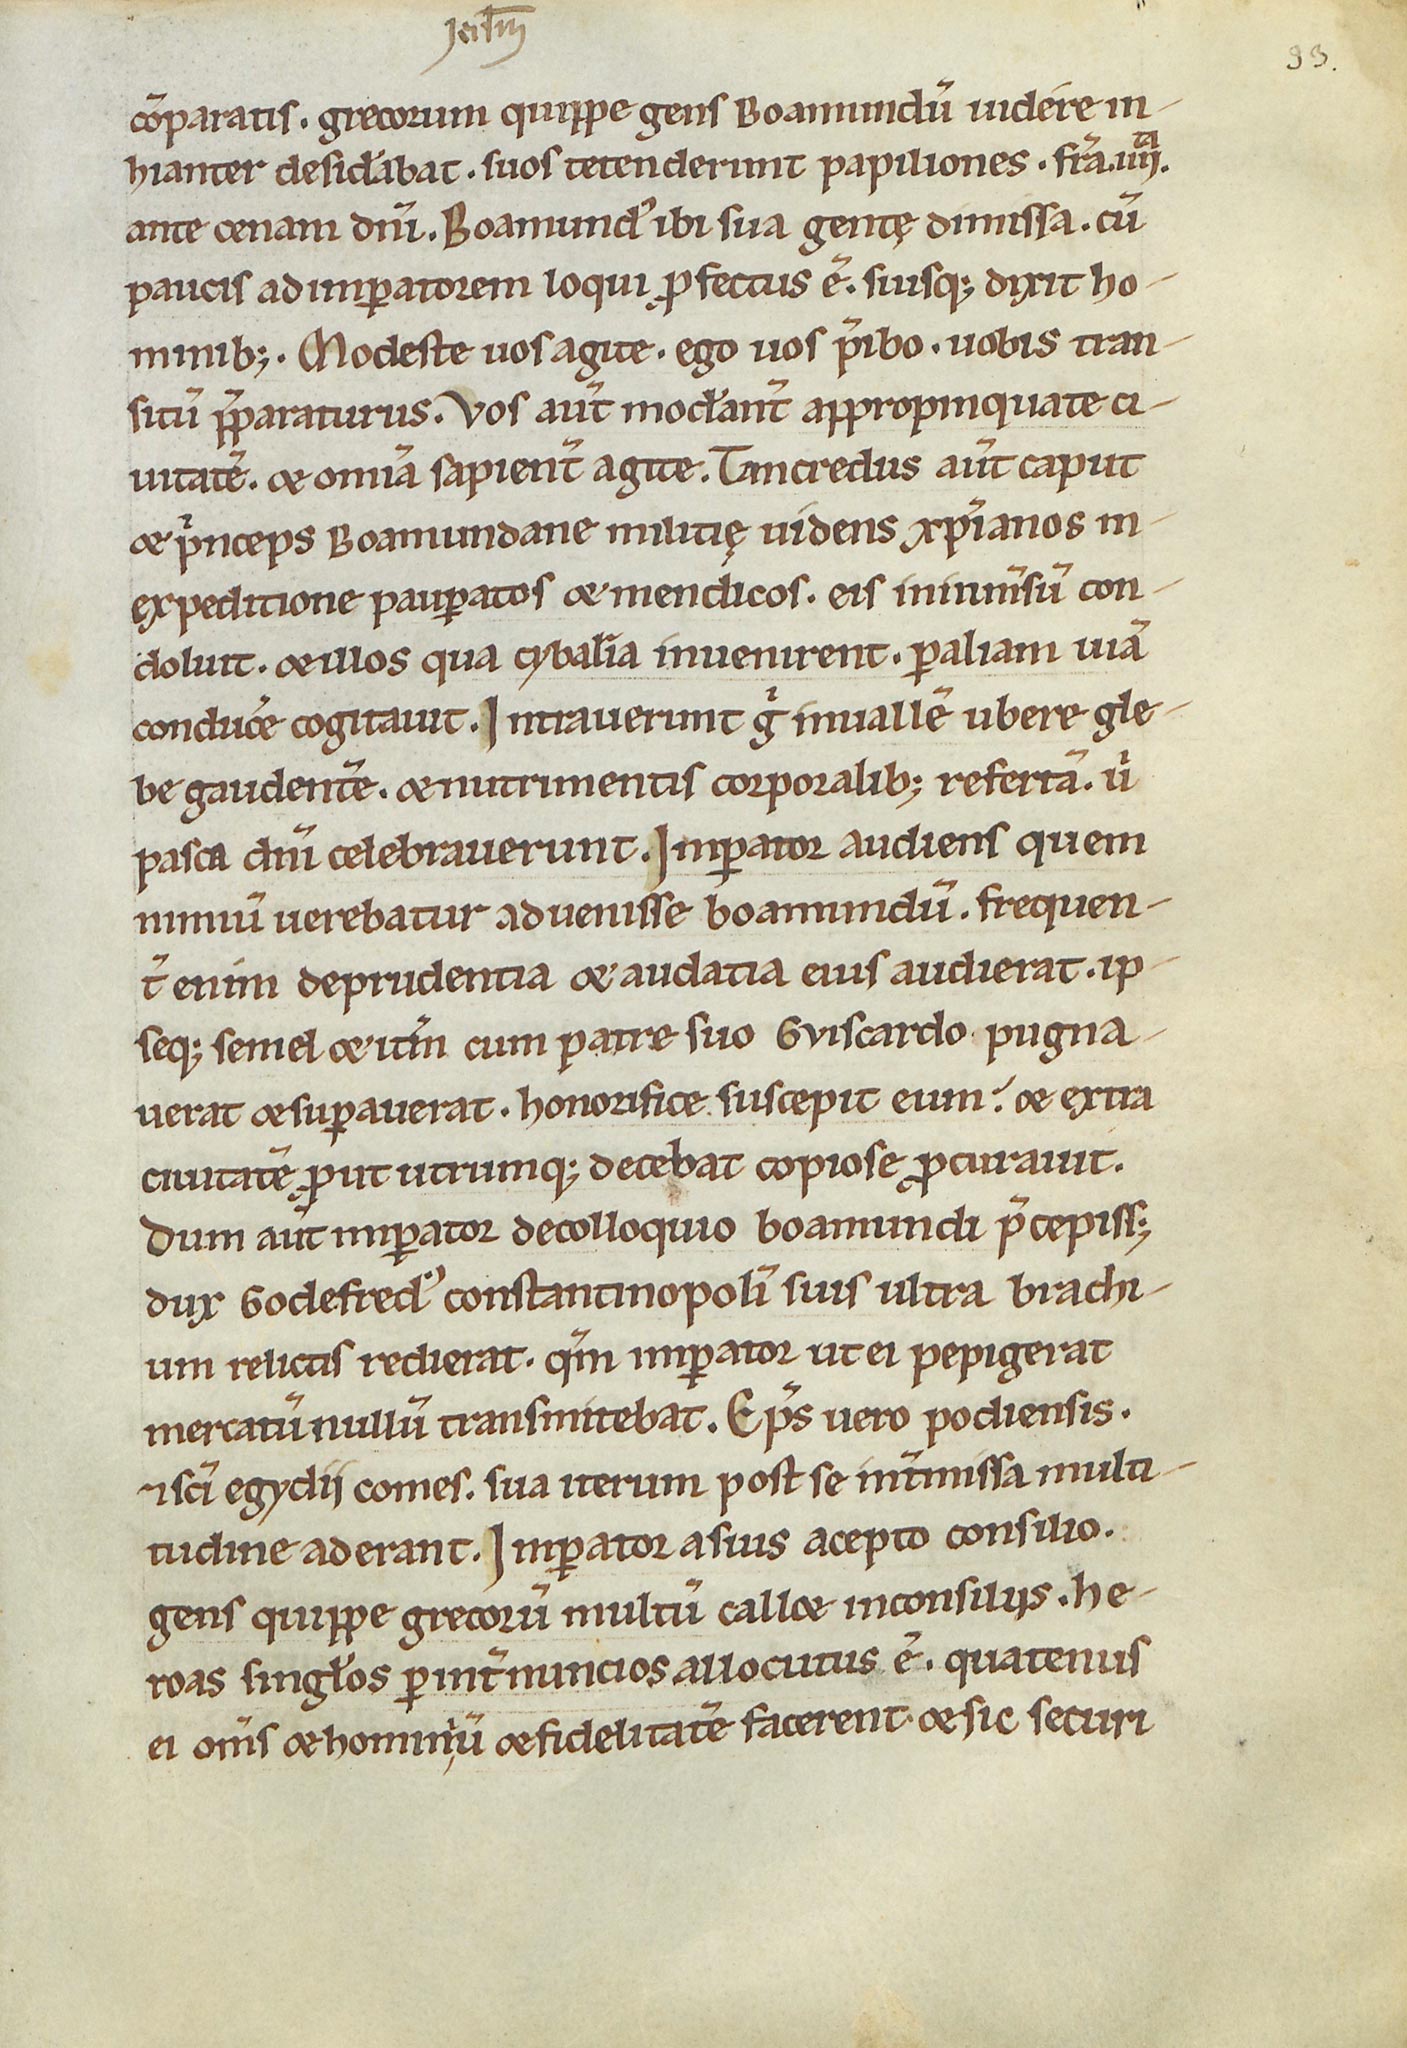 93.
cōparatis. grecorum quippe gens Boamundū uidere in-
hianter desid̄abat. suos tetenderunt papiliones. fr̄a. iiij.ta
ante cenam dn̄i. Boamund᾽ ibi sua gentę dimissa. cū
paucis ad imꝑatorem loqui ꝓfectus ē. suisq; dixit ho-
minib;. Modeste uos agite. ego uos p̄ibo. uobis tran-
sitū p̄paraturus. Vos aut̄ mod̄ant̄ appropinquate ci-
uitatē. & om̄ia sapient̄ agite. Tancredus aut̄ caput
& p̓nceps Boamundane militię uidens xp̄ianos in
expeditione pauꝑatos & mendicos. eis in inm̄sū con-
doluit. & illos qua cybaīa inuenirent. ꝑ aliam uiā
conduc̄e cogitauit. Intrauerunt g̓ in uallē ubere gle-
be gaudentē. & nutrimentis corporalib; refertā. u̓
pasca dn̄i celebrauerunt. Imꝑator audiens quem
nimiū uerebatur aduenisse boamundū. frequen-
t̄ enim de prudentia & audatia eius audierat. ip-
seq; semel & itm̄ cum patre suo Guiscardo pugna-
uerat & suꝑauerat. honorifice suscepit eum. & extra
ciuitatē ꝓut utrumq; decebat copiose ꝓcurauit.
Dum aut̄ imꝑator de colloquio boamundi p̄cepiss;
dux Godefred᾽ constantinopolī suis ultra brachi-
um relictis redierat. qm̄ imꝑator ut ei pepigerat
mercatū nullū transmitebat. Ep̄s uero podiensis.
⁊ sc̄i egydij comes. sua iterum post se int̄missa multi-
tudine aderant. Imꝑator a suis acepto consilio.
gens quippe grecorū multū call& in consilijs. he-
roas singl̄os ꝑ int̄nuncios allocutus ē. quatenus
ei om̄s & hominiū & fidelitatē facerent & sic securi